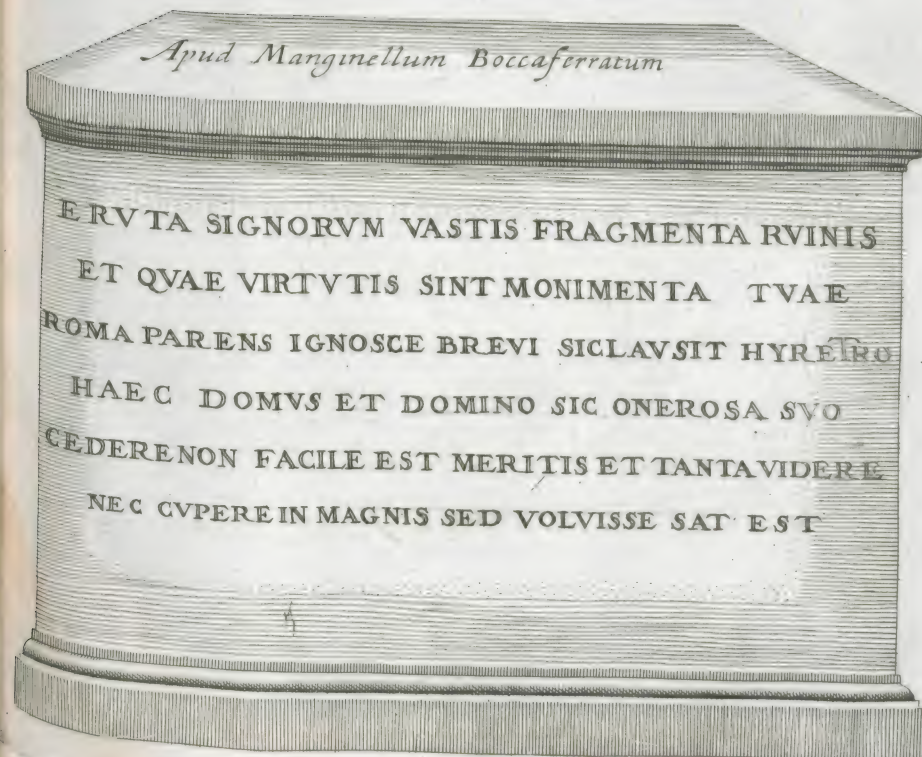 Apud Manginellum Boccaferratum
ERVTA SIGNORVM VASTIS FRAGMENTA RVINIS
ET QVAE VIRTVTIS SINT MONIMENTA TVAE
ROMA PARENS IGNOSCE BREVI SICLAVSIT HYRETRO
HAEC DOMVS ET DOMINO SIC ONEROSA SVO
CEDERENON FACILE EST MERITIS ET TANTAVIDERE
NEC CVPEREIN MAGNIS SED VOLVISSE SAT EST